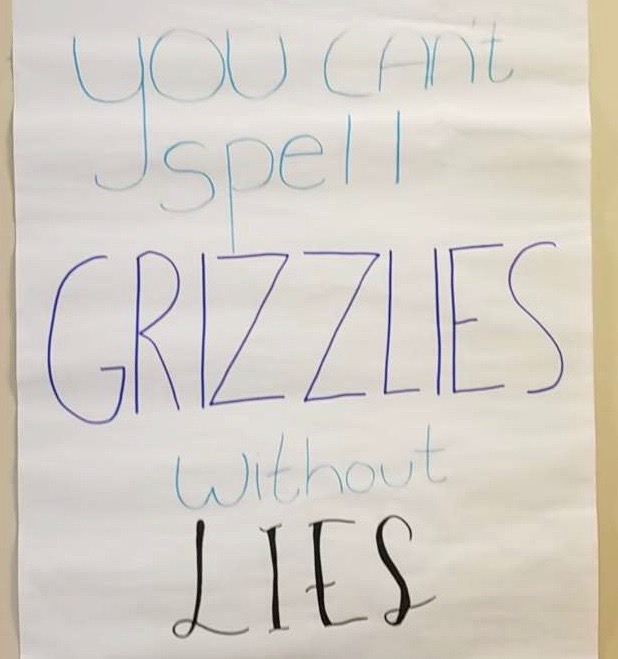 you CAn't
spell
GRIZZLIES
without
LIES